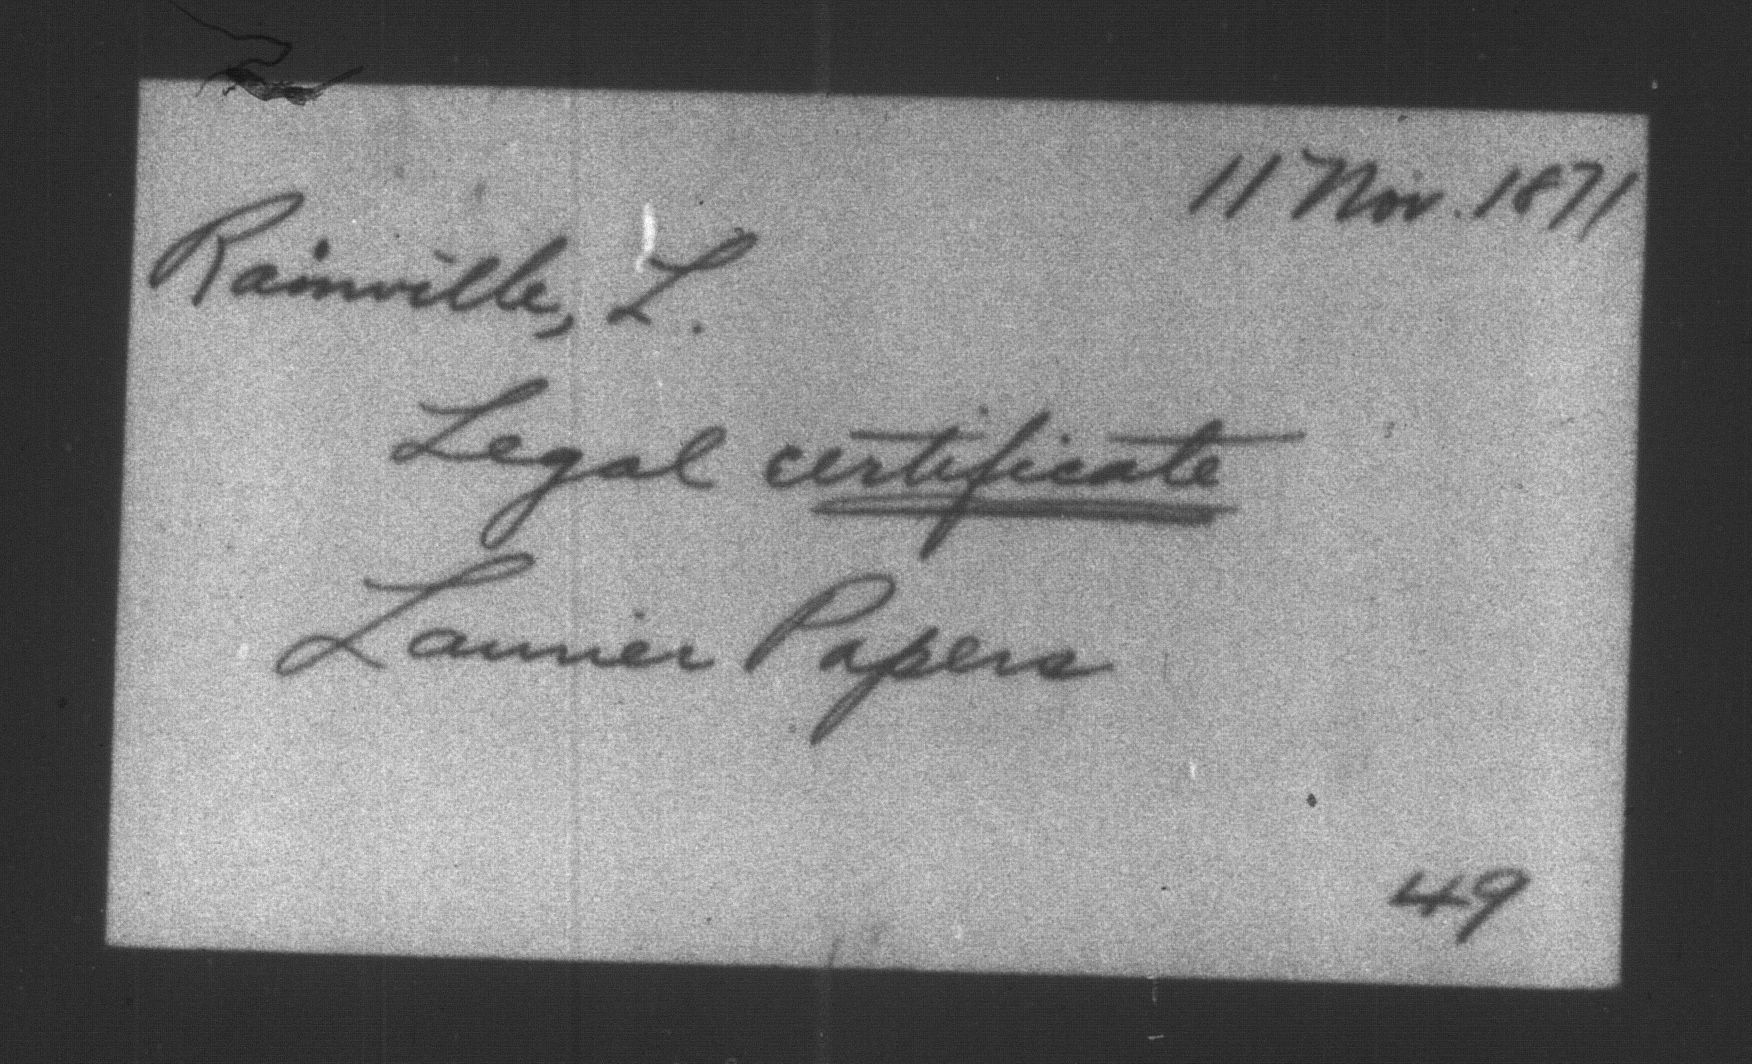 11 Nov. 1871
Rainville, L.
Legal certificate
Laurier Papers
49